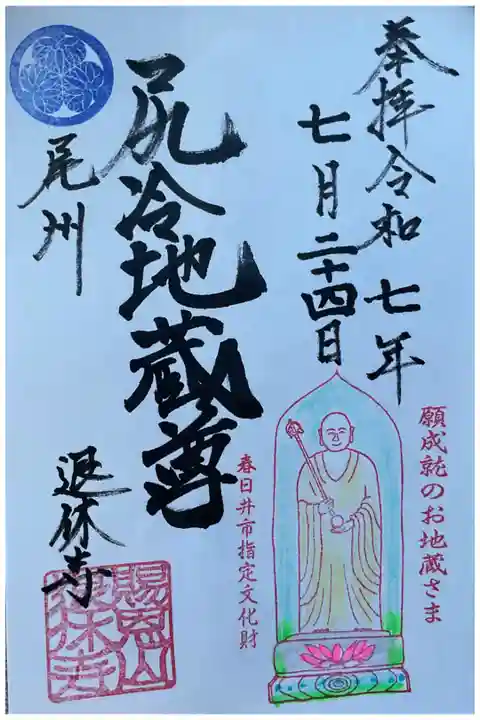 奉拝 令和七年
七月二十四日
願成就のお地蔵さま
尻冷地蔵尊
春日井市指定文化財
尾州
退休寺
賜恩山
退休寺